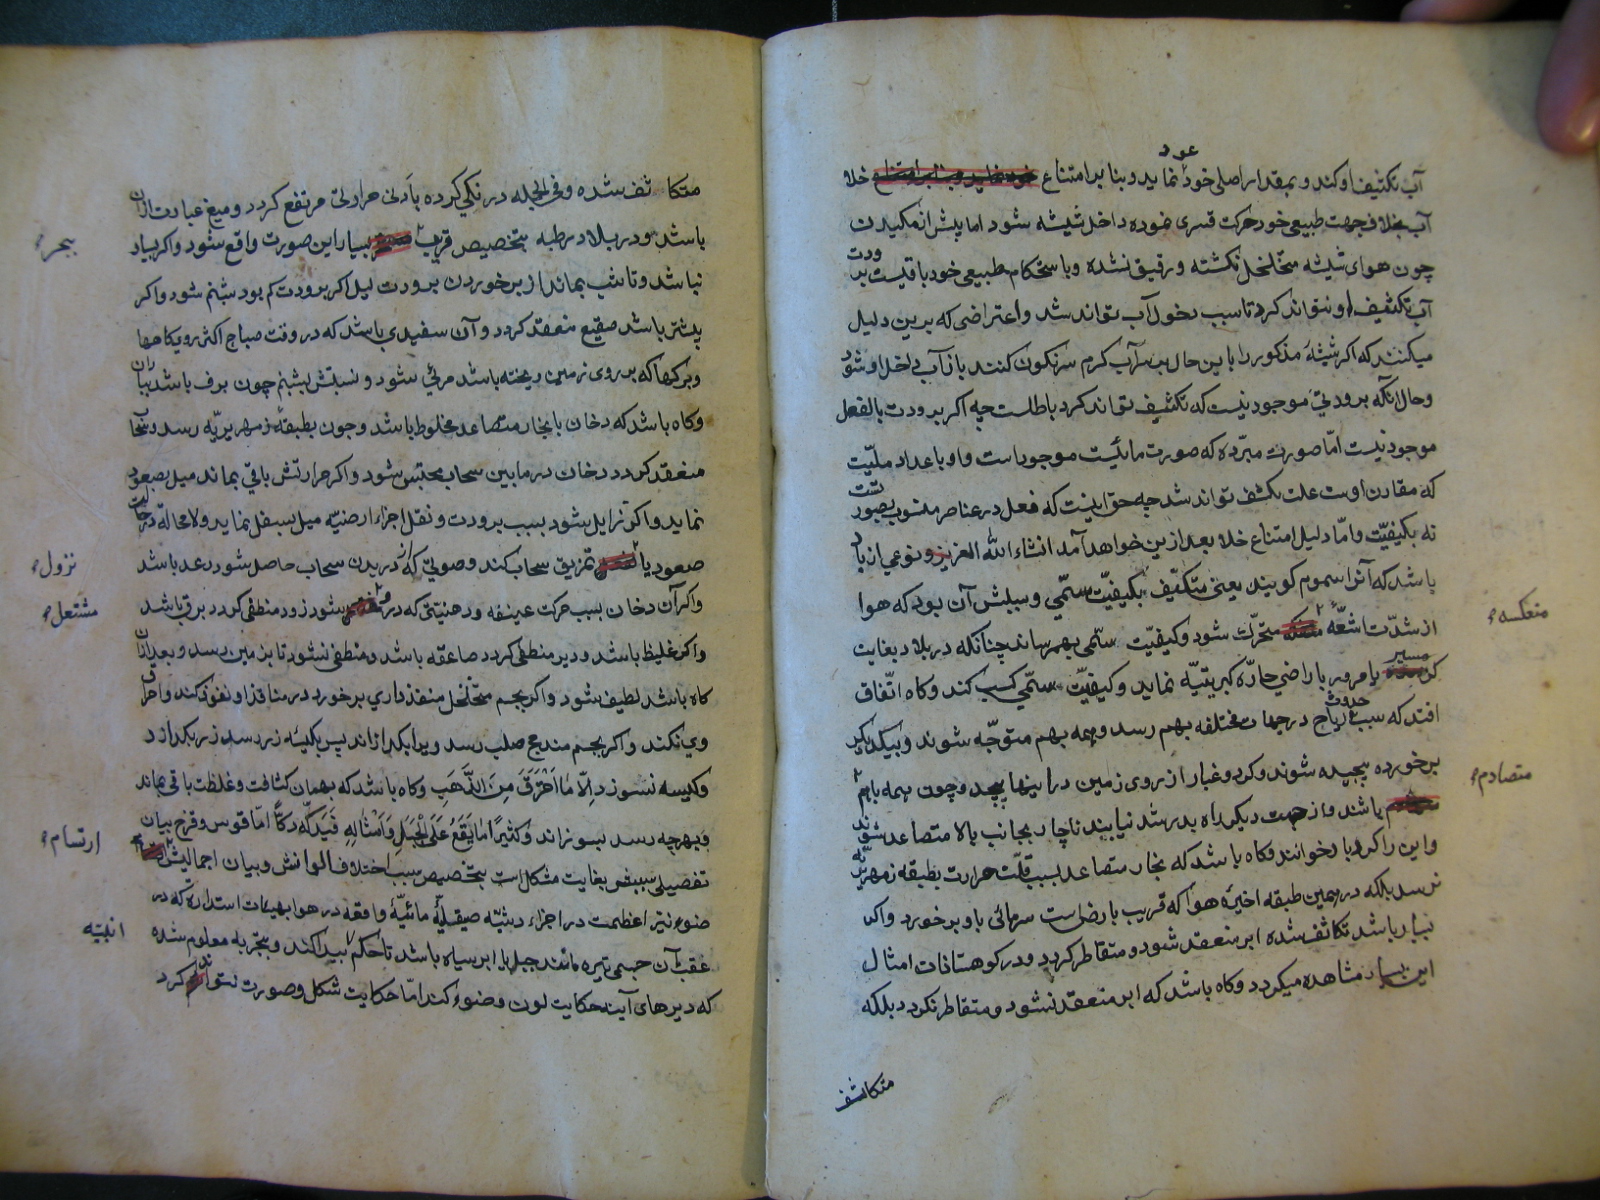 عود
آب تکثیف او کند و بمقدار اصلی خود نماید و بنا بر امتناع خلا
آب بخلاف جهت طبیعی خود حرکت قسری نموده داخل شیشه شود اما پیش از مکیدن
چون هوای شیشه متخلخل نکشته و رقیق نشده و باستحکام طبیعی خود باقیست برودت
آب تکثیف او نتواند کرد تا سبب دخول آب تواند شد و اعتراضی که برین دلیل
میکنند که اکر شیشهٔ مذکور را باین حال بر سر آب کرم سرنکون کنند باز آب داخل او شود
و حال آنکه برودتی موجود نیست که تکثیف تواند کرد باطلست چه اکر برودت بالفعل
موجود نیست امّا صورت مبرّده که صورت مائیت موجود است و او باعداد
که مقارن اوست علت تکثف تواند شد چه حق اینست که فعل در عناصر منسوب بصورتست
نه بکیفیّت و امّا دلیل امتناع خلا بعد ازین خواهد آمد انشاء الله العزیز و نوعی از باد
باشد که آنرا سموم کویند یعنی متکیّف بکیفیّت سمّی و سببش آن بود که هوا
از شدّت اشعّهٔ متحرّک شود و کیفیّت سمّی بهم رساند چنانکه در بلاد بغایت
منعکسه
کرمسیر یا مرور باراضی حارّه کبریتیّه نماید و کیفیّت سمّی کسب کند و کاه اتّفاق
افتد که سبب حدوث ریاح در جهات مختلفه بهم رسد و همه بهم متوجّه شوند و بیکدیکر
برخورده پیچیده شوند و کرد و غبار از روی زمین در اینها پیچد و چون همه باهم
متصادم
باشند و از جهت دیکر راه بدر شد نیابند ناچار بجانب بالا متصاعد شوند
و این را کردباد خوانند و کاه باشد که بخار متصاعد بسبب قلّت حرارت بطبقه زمهریریّه
نرسد بلکه در همین طبقه اخیرهٔ هوا که قریب بارض است سرمائی باو برخورد و اکر
بسیار باشد تکاثف شده ابر منعقد شود و متقاطر کردد و در کوهستانات امثال
این بسیار مشاهده میکردد و کاه باشد که ابر منعقد نشود و متقاطر نکردد بلکه
متکاثف
متکاثف شده و فی الجمله درنکی کرده بادنی حرارتی مرتفع کردد و میغ عبارت از آن
باشد و در بلاد رطبه بتخصیص قریب بسیار این صورت واقع شود و اکر بسیار
ببحر
نباشد و تا شب بماند از برخوردن برودت لیل اکر برودت کم بود شبنم شود و اکر
بیشتر باشد صقیع منعقد کردد و آن سفیدی باشد که در وقت صباح اکثر روی کاهها
و برکها که بر روی زمین ریخته باشد مرئی شود و نسبتش بشبنم چون برف باشد بباران
و کاه باشد که دخان با بخار متصاعد مخلوط باشد و چون بطبقهٔ زمهریریّه رسد و سحاب
منعقد کردد دخان در مابین سحاب محتبس شود و اکر حرارتش باقی بماند میل بصعود
نماید و اکر زایل شود بسبب برودت و ثقل اجزاء ارضیّه میل بسفل نماید و لامحاله در حالت
صعود یا تمزیق سحاب کند و صوتی که از دریدن سحاب حاصل شود رعد باشد
نزول
و اکر آن دخان بسبب حرکت عنیفه و دهنیّتی که در اوست شود زود منطفی کردد برق باشد
مشتعل
و اکر غلیظ باشد و دیر منطفی کردد صاعقه باشد و منطفی نشود تا بزمین رسد و بعد از آن
کاه باشد لطیف شود و اکر بجسم متخلخل منفذداری برخورد در منافذ او نفوذ کند و احراق
وی نکند و اکر بجسم مندمج صلب رسد ویرا بکدازاند پس بکیسه زر رسد زر بکدازد
و کیسه نسوزد الّا ما احترق من الذّهب و کاه باشد که بهمان کثافت و غلظت باقی بماند
و بهر چه رسد بسوزاند و کثیرًا ما یقع علی الجبل و امثاله فیدکّه دکًّا امّا قوس و قزح بیان
تفصیلی سببش بغایت مشکل است بتخصیص سبب اختلاف الوانش و بیان اجمالیش
ارتسام
ضوء نیّر اعظمست در اجزاء رشیّه صیقلیّهٔ مائیّهٔ واقعه در هوا بهیئت استداره که در
عقب آن جسمی تیره مانند جبل یا ابر سیاه باشد تا حکم پیدا کند و بتجربه معلوم شده
که در مرهای آینه حکایت لون و ضوء کند امّا حکایت شکل و صورت نتواند کرد